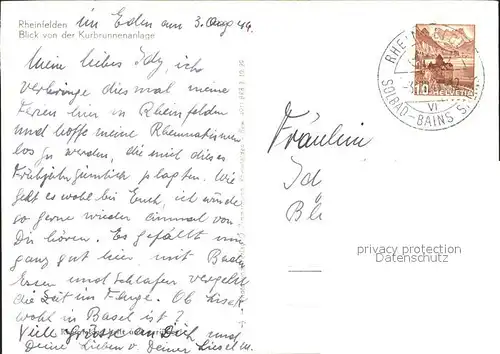 Rheinfelden
Blick von der Kurbrunnenanlage
im Eden am 3. Aug 44
Mein liebes Idy, ich
verbringe dies mal meine
Ferien hier in Rheinfelden
und hoffe meine Rheumatismen
los zu werden, die mich dieses
Frühjahr ziemlich plagten. Wie
geht es wohl bei Euch, ich würde
so gerne wieder einmal von
Dir hören. Es gefällt mir
ganz gut hier, mit Baden
Essen und Schlafen vergeht
die Zeit im Fluge. Ob
wohl in Basel ist?
Viele Grüsse an Dich und
Deine Lieben v. Deiner Liesel
Fräulein
Id
Bl
HELVETIA
10
SOLBAD-BAINS
VI
privacy protection
Datenschutz